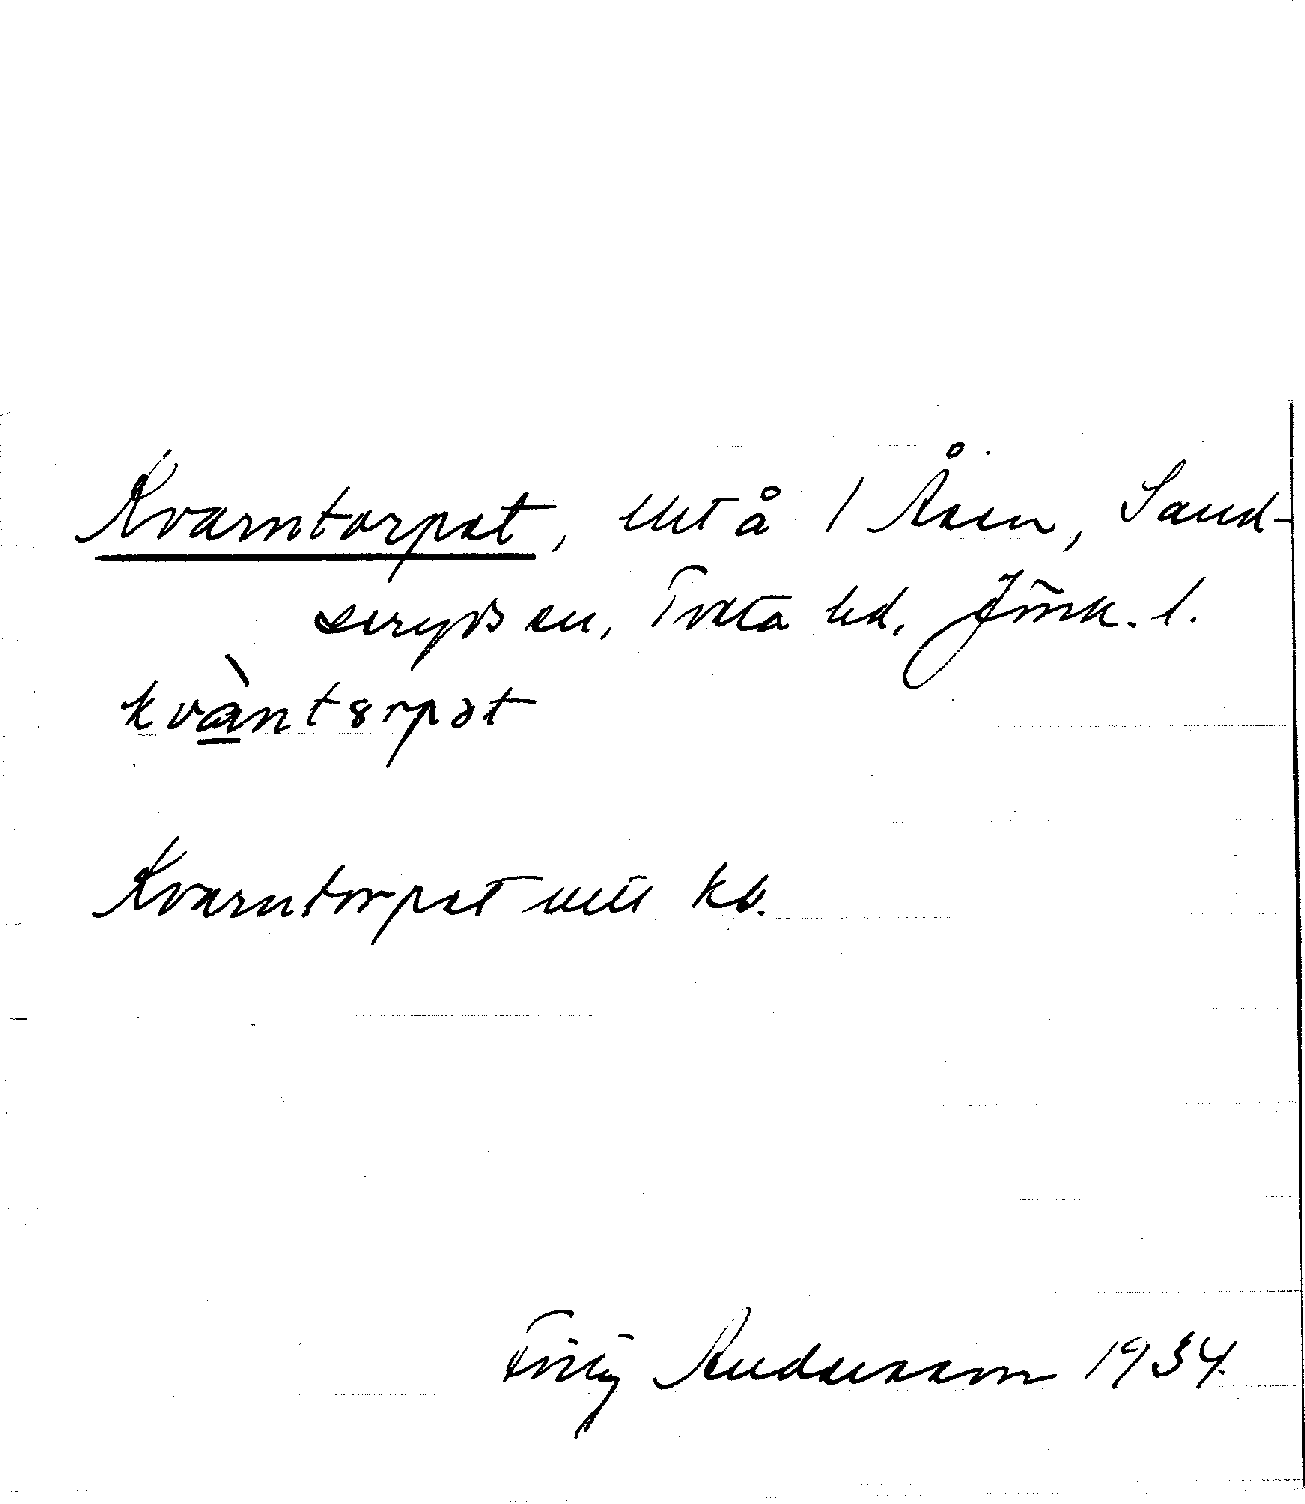 Kvarntorpet, lht å 1 Åsen, Sand-
seryds sn, Tveta hd. Jönk. l.
kvàntȣrpət
Kvarntorpet kb.
Fritz Andersson 1934